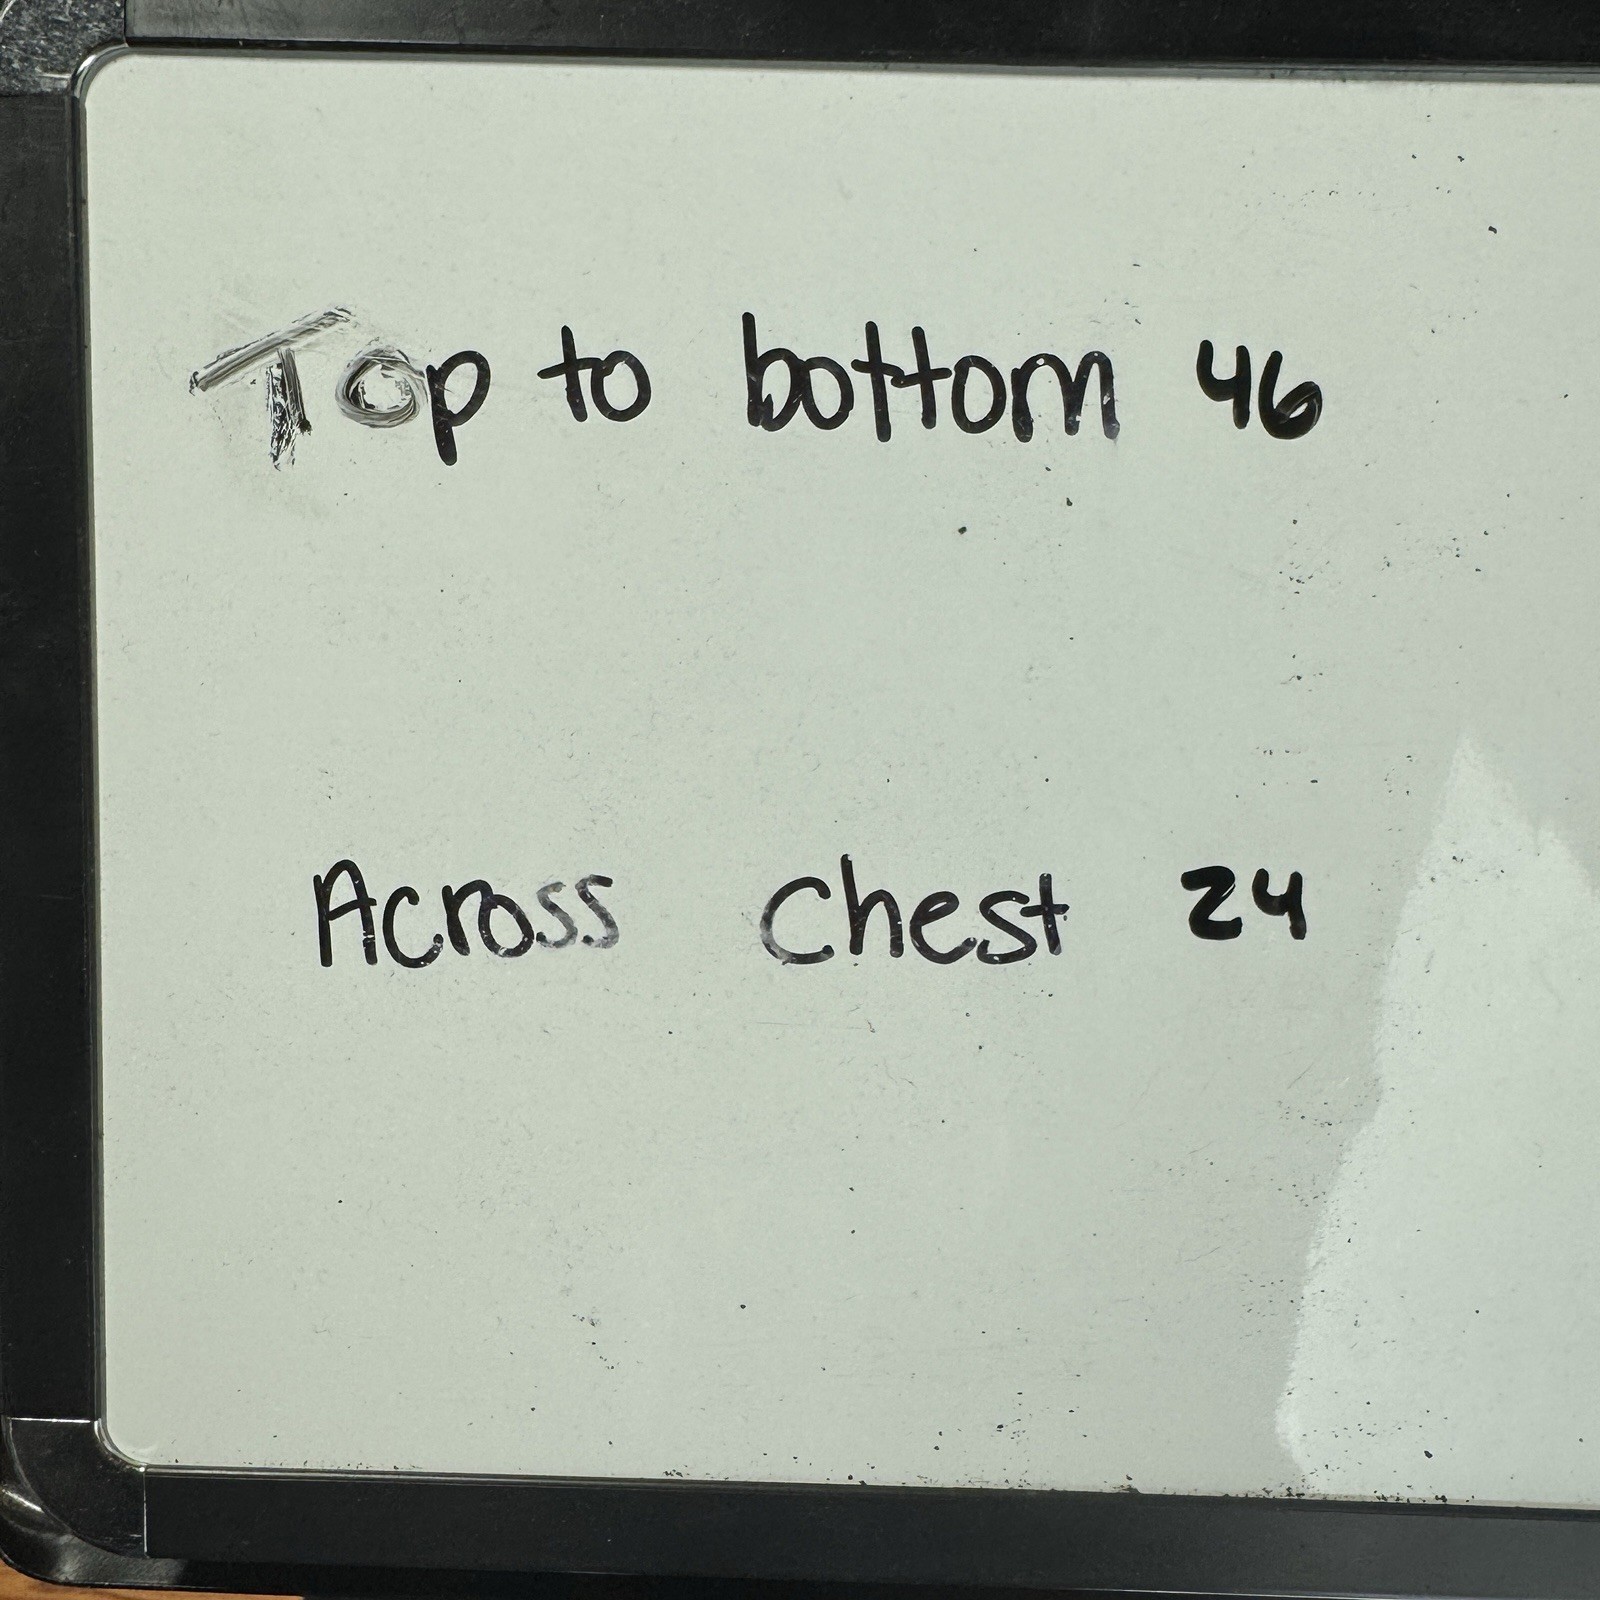 Top to bottom 46
Across Chest 24